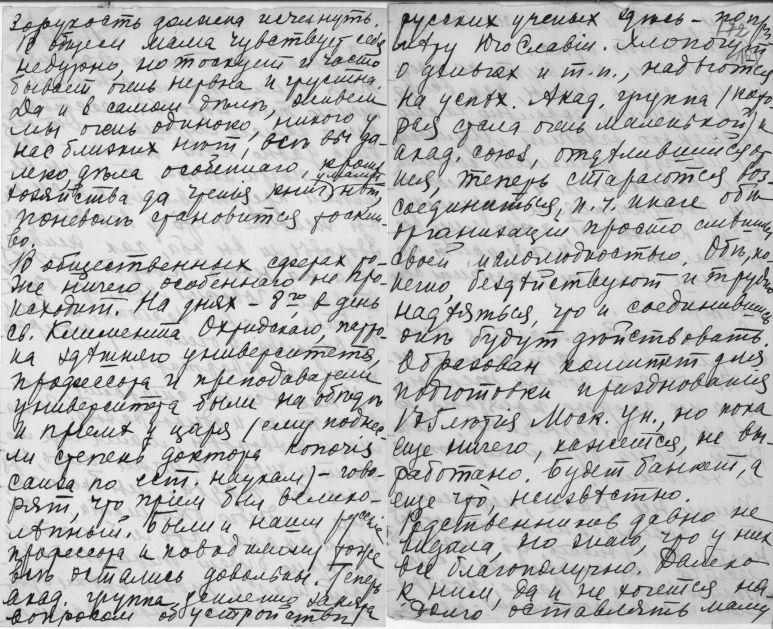 должна исчезнуть.
В общем мама чувствует себя
недурно, но тоскует и часто
бывает очень нервна и грустна.
Да и в самом дѣлѣ, живем
мы очень одиноко, никого у
нас близких нѣт, всѣ вы да-
леко, дѣла особеннаго, кромѣ
хозяйства да чтенья книг, нѣт,
поневолѣ становится тоскли-
во.
В общественных сферах то-
же ничего особеннаго не про-
исходит. На днях – 8го, в день
св. Климента Охридскаго, патро-
на здѣшняго университета,
профессора и преподаватели
университета были на обѣдѣ
и приемѣ у царя (ему поднес-
ли степень доктора honoris
causa по ест. наукам) – гово-
рят, что прiем был велико-
лѣпный. Были и наши русскiе
профессора и повидимому тоже
всѣ остались довольны. Теперь
акад. группа усиленно занята
вопросом об устройствѣ
русских ученых здѣсь – по при-
мѣру Югославiи. Хлопочут
о деньгах и т.п., надѣются
на успѣх. Акад. группа (кото-
рая стала очень маленькой) и
акад. союз, отдѣлившийся от
нея, теперь стараются воз-
соединиться, п.ч. иначе обѣ
организацiи просто
своей малолюдностью. Обѣ, ко-
нечно, бездѣйствуют и трудно
надѣяться, что и соединившись
онѣ будут дѣйствовать.
Образован комитет для
подготовки празднования
юбилея Моск. ун., но пока
еще ничего, кажется, не вы-
работано. Будет банкет, а
еще что, неизвѣстно.
Родственников давно не
видала, но знаю, что у них
все благополучно. Далеко
к ним, да и не хочется на-
долго оставлять маму